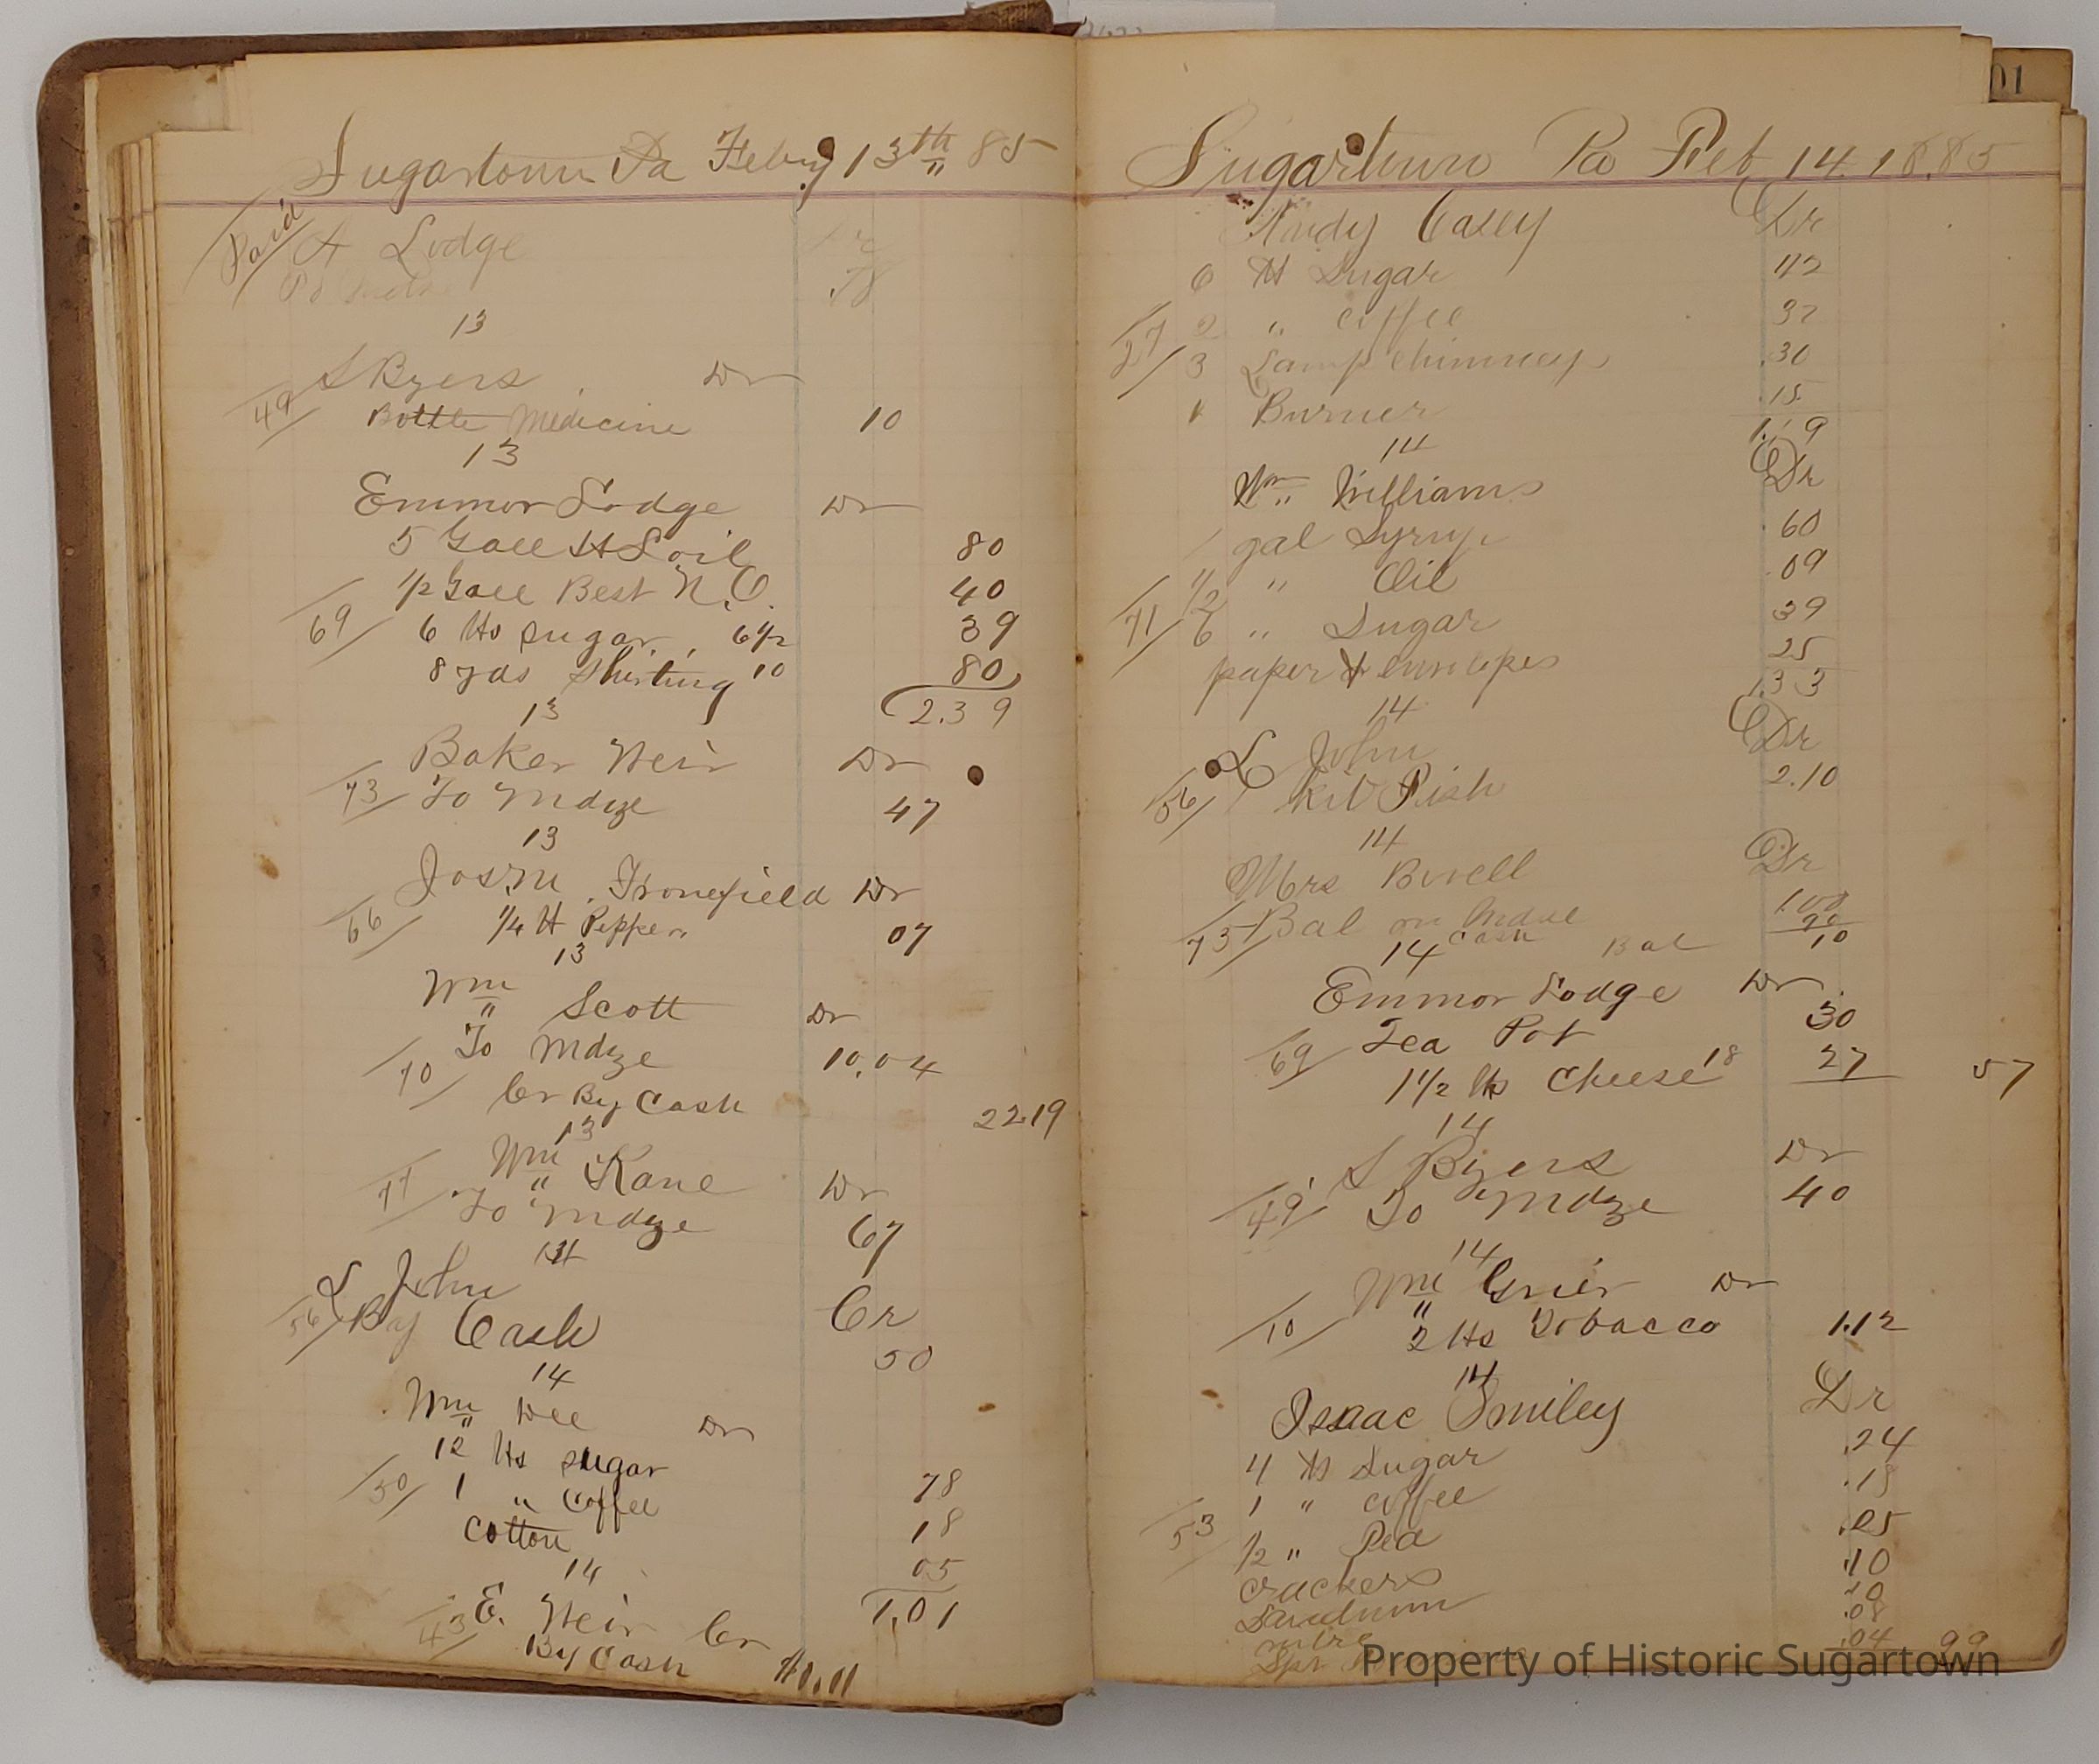 Sugartown Pa Feby 13th 85
Paid
A Lodge
13
S Byers Dr
49 Bottle Medicine 10
13
Emmor Lodge Dr
5 Gall H L oil 80
1/2 Gall Best N.O. 40
69 6 lbs sugar 6 1/2 39
8 yds Shirting 10 80
13 2.39
Baker Weir Dr
73 To Mdze 47
13
Dr
66 1/4 lb Pepper 07
13
Wm Scott Dr
To Mdze 10.04
70 Cr By Cash 22.19
13
Wm Kane Dr
77 To Mdze 67
L John Cr
56 By Cash 50
14
Wm Dr
12 lbs sugar 78
50 1 " Coffee 18
Cotton 05
14 1.01
43 E. Weir Cr
By Cash
Sugartown Pa Feb 14. 1885
Andy Casey Dr
6 lb Sugar 42
27 2 " Coffee 32
3 Lamp Chimneys .30
1 Burner .15
14 1.19
Wm Williams Dr
1 gal Syrup .60
1/2 " Oil .09
71 6 " Sugar 39
paper & envelopes 25
14 1.33
L John Dr
56 1 Kit Fish 2.10
14
Mrs Dr
75 Bal on 1.00
Cash 90
14 Bal 10
Emmor Lodge Dr
69 Tea Pot 30
1 1/2 lbs Cheese 18 27 57
14
S Byers Dr
49 To Mdze 40
14
Wm Grier Dr
10 2 lbs Tobacco 1.12
14
Isaac Smiley Dr
4 lb Sugar .24
1 " Coffee .18
53 1/2 " .25
Crackers .10
.04 99
Property of Historic Sugartown